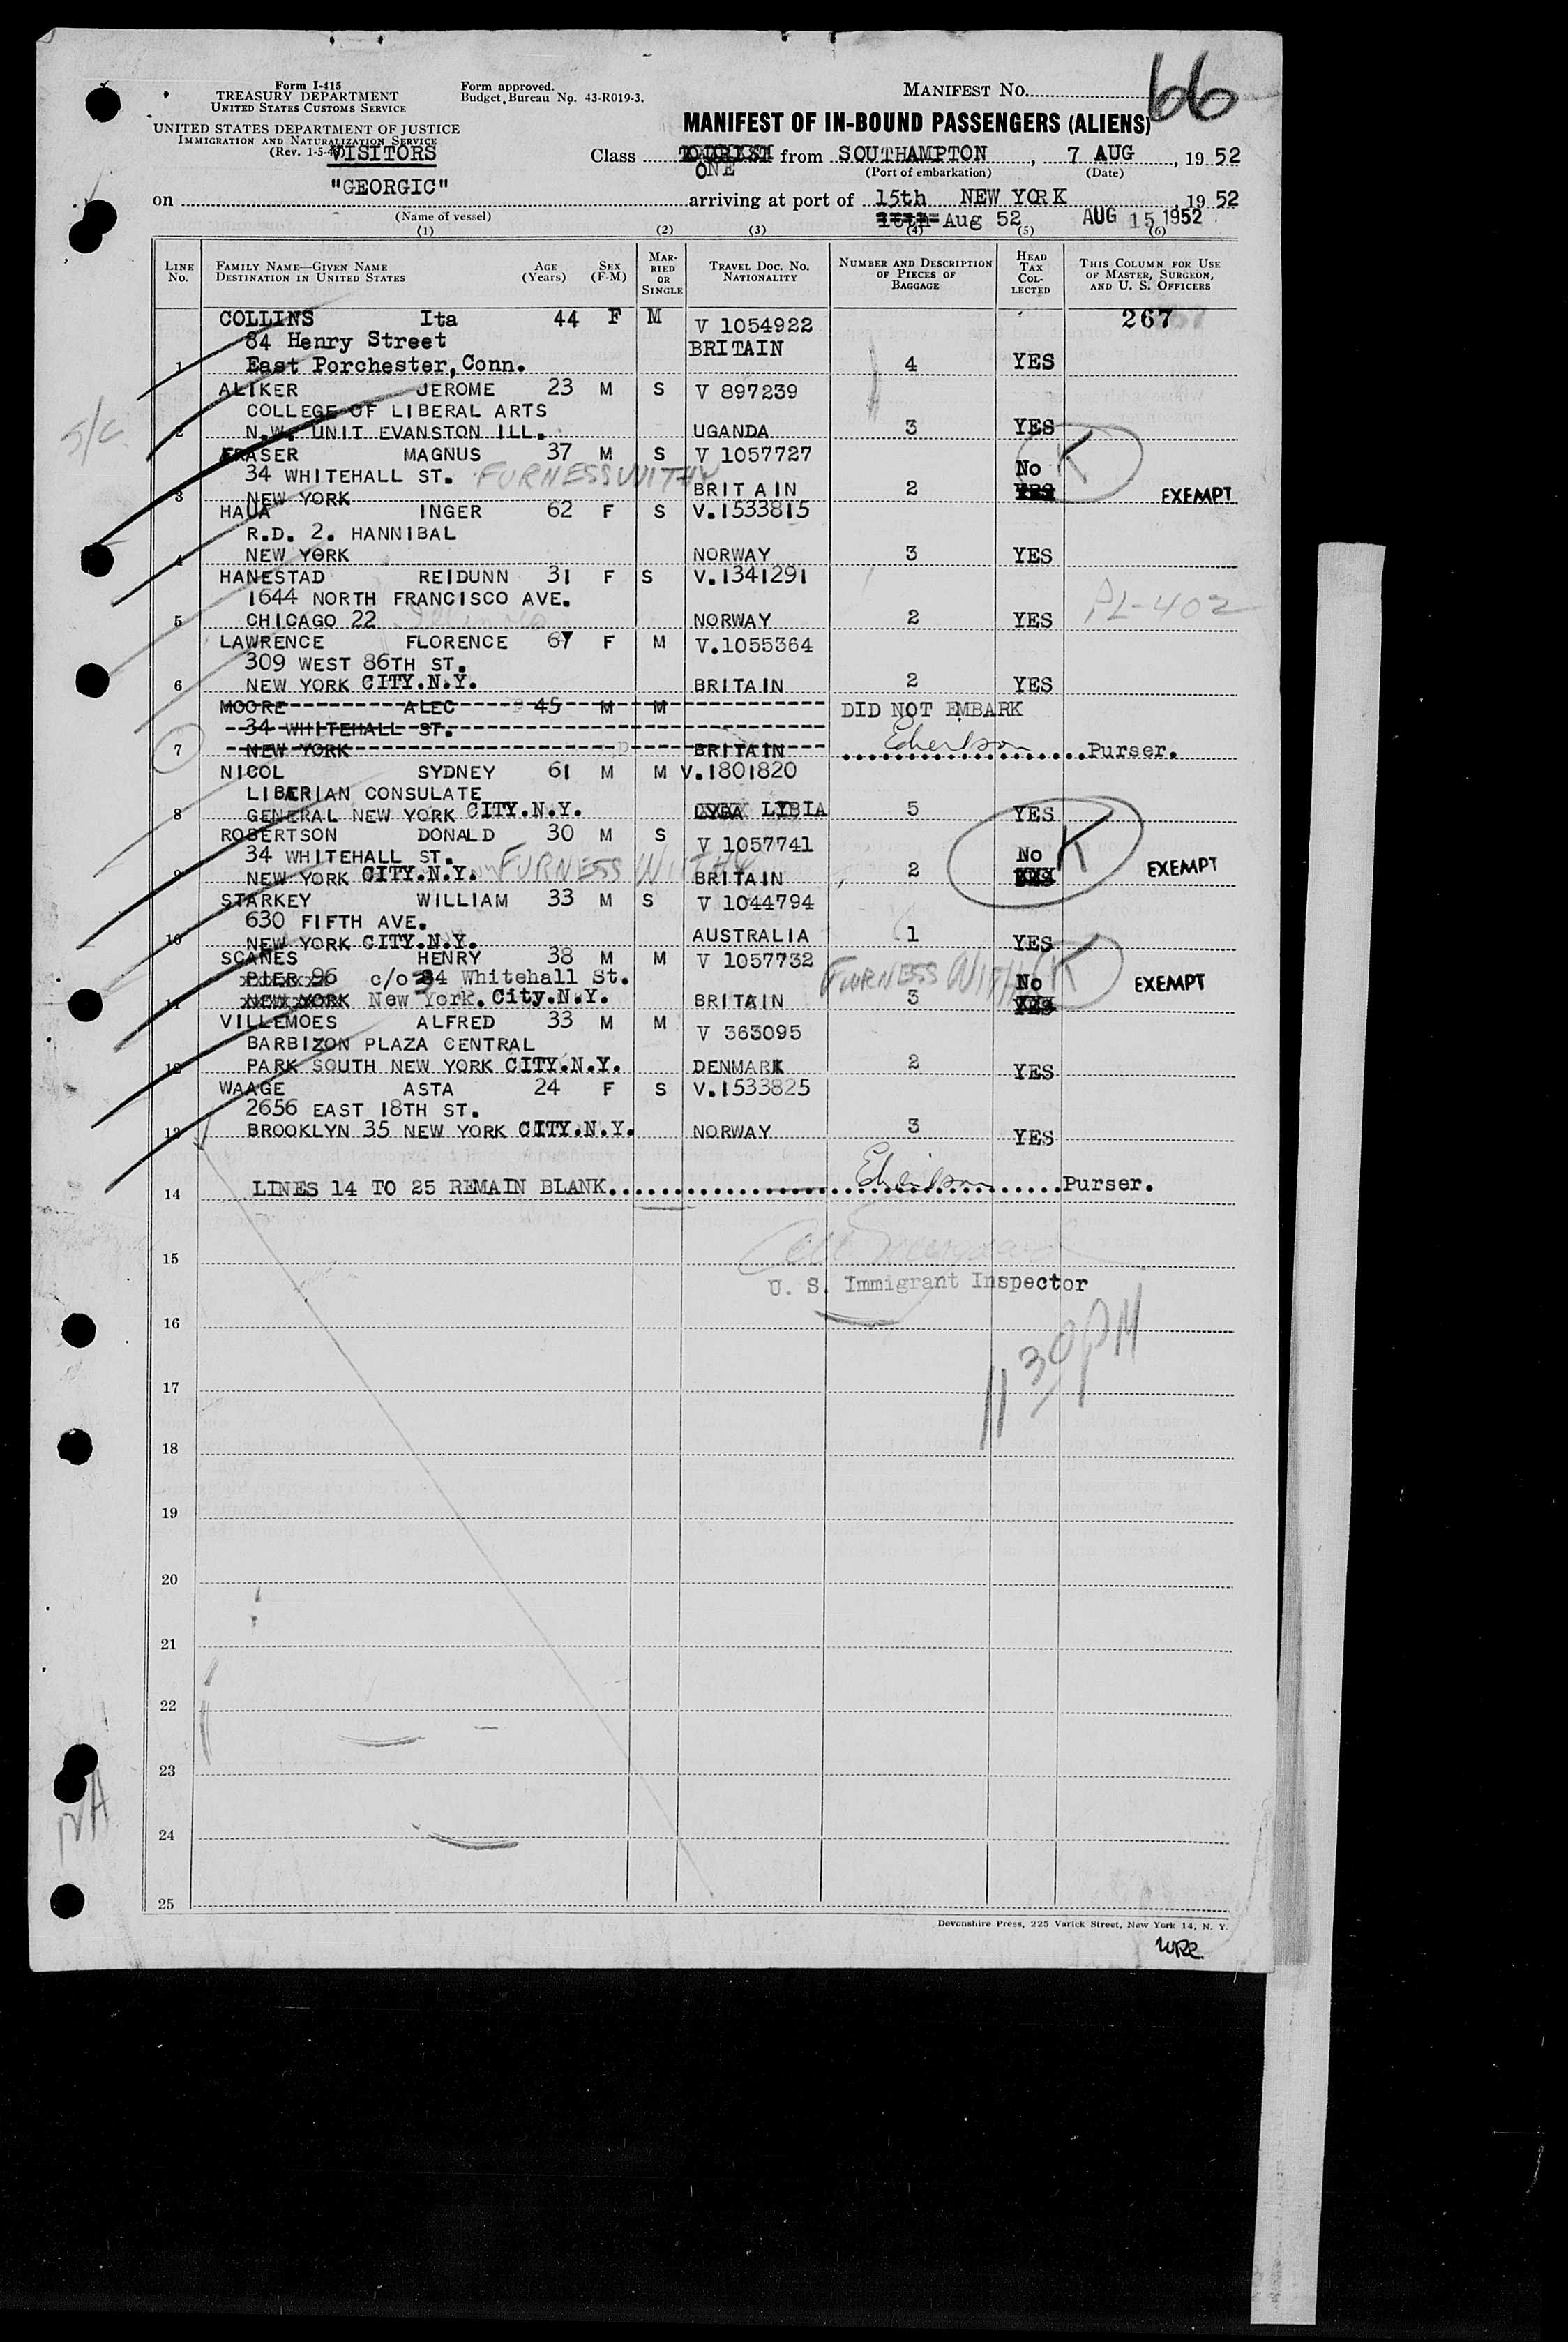 Form I-415
TREASURY DEPARTMENT
UNITED STATES CUSTOMS SERVICE
Form approved.
Budget Bureau No. 43-R019-3.
MANIFEST NO. 66
UNITED STATES DEPARTMENT OF JUSTICE
IMMIGRATION AND NATURALIZATION SERVICE
VISITORS
MANIFEST OF IN-BOUND PASSENGERS (ALIENS)
Class TOURIST from SOUTHAMPTON, 7 AUG, 1952
ONE (Port of embarkation) (Date)
on "GEORGIC" arriving at port of 15th NEW YORK 1952
(Name of vessel) Aug 52 AUG 15 1952
(1) (2) (3) (4) (5) (6)
LINE NO. FAMILY NAME—GIVEN NAME DESTINATION IN UNITED STATES AGE (Years) SEX (F-M) MARRIED OR SINGLE TRAVEL DOC. NO. NATIONALITY NUMBER AND DESCRIPTION OF PIECES OF BAGGAGE HEAD TAX COLLECTED THIS COLUMN FOR USE OF MASTER, SURGEON, AND U. S. OFFICERS
COLLINS Ita 44 F M V 1054922 267
84 Henry Street BRITAIN
1 East Porchester, Conn. 4 YES
ALIKER JEROME 23 M S V 897239
COLLEGE OF LIBERAL ARTS
S/C
2 N.W. UNIT EVANSTON ILL. UGANDA 3 YES
FRASER MAGNUS 37 M S V 1057727
34 WHITEHALL ST. FURNESS WITHY No K
3 NEW YORK BRITAIN 2 YES EXEMPT
HAUA INGER 62 F S V.1533815
R.D. 2. HANNIBAL
4 NEW YORK NORWAY 3 YES
HANESTAD REIDUNN 31 F S V.1341291
1644 NORTH FRANCISCO AVE. PL-402
5 CHICAGO 22 Illinois NORWAY 2 YES
LAWRENCE FLORENCE 67 F M V.1055364
309 WEST 86TH ST.
6 NEW YORK CITY.N.Y. BRITAIN 2 YES
MOORE ALEC 45 M M DID NOT EMBARK
34 WHITEHALL ST.
7 NEW YORK BRITAIN Purser.
NICOL SYDNEY 61 M M V.1801820
LIBERIAN CONSULATE
8 GENERAL NEW YORK CITY.N.Y. LYBIA 5 YES
ROBERTSON DONALD 30 M S V 1057741
34 WHITEHALL ST. FURNESS WITHY No K
9 NEW YORK CITY.N.Y. BRITAIN 2 YES EXEMPT
STARKEY WILLIAM 33 M S V 1044794
630 FIFTH AVE.
10 NEW YORK CITY.N.Y. AUSTRALIA 1 YES
SCANES HENRY 38 M M V 1057732 FURNESS WITHY K
PIER 96 c/o 34 Whitehall St. No EXEMPT
11 NEW YORK New York. City.N.Y. BRITAIN 3 YES
VILLEMOES ALFRED 33 M M V 363095
BARBIZON PLAZA CENTRAL
12 PARK SOUTH NEW YORK CITY.N.Y. DENMARK 2 YES
WAAGE ASTA 24 F S V.1533825
2656 EAST 18TH ST.
13 BROOKLYN 35 NEW YORK CITY.N.Y. NORWAY 3 YES
14 LINES 14 TO 25 REMAIN BLANK Purser.
15
U. S. Immigrant Inspector
16
11 30 PM
17
18
19
20
21
22
23
NA
24
25
Devonshire Press, 225 Varick Street, New York 14, N. Y.